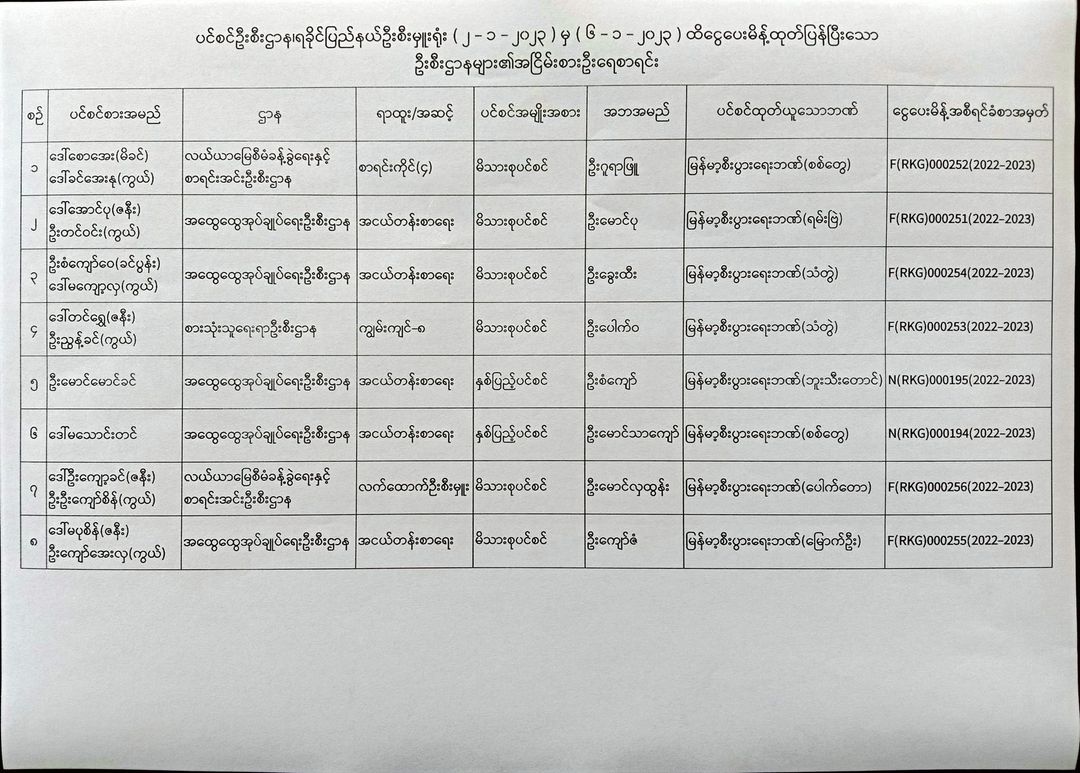 ပင်စင်ဦးစီးဌာန၊ရခိုင်ပြည်နယ်ဦးစီးမှူးရုံး ( ၂ - ၁ - ၂၀၂၃ ) မှ ( ၆ - ၁ - ၂၀၂၃ ) ထိငွေပေးမိန့်ထုတ်ပြန်ပြီးသော
ဦးစီးဌာနများ၏အငြိမ်းစားဦးရေစာရင်း
စဉ် ပင်စင်စားအမည် ဌာန ရာထူး/အဆင့် ပင်စင်အမျိုးအစား အဘအမည် ပင်စင်ထုတ်ယူသောဘဏ် ငွေပေးမိန့်အစီရင်ခံစာအမှတ်
၁ ဒေါ်စောအေး(မိခင်) လယ်ယာမြေစီမံခန့်ခွဲရေးနှင့် စာရင်းကိုင်(၄) မိသားစုပင်စင် ဦးဂူရာဖြူ မြန်မာ့စီးပွားရေးဘဏ်(စစ်တွေ) F(RKG)000252(2022-2023)
ဒေါ်ခင်အေးနု(ကွယ်) စာရင်းအင်းဦးစီးဌာန
၂ ဒေါ်အောင်ပု(ဇနီး) အထွေထွေအုပ်ချုပ်ရေးဦးစီးဌာန အငယ်တန်းစာရေး မိသားစုပင်စင် ဦးမောင်ပု မြန်မာ့စီးပွားရေးဘဏ်(ရမ်းဗြဲ) F(RKG)000251(2022-2023)
ဦးတင်ဝင်း(ကွယ်)
၃ ဦးစံကျော်ဝေ(ခင်ပွန်း) အထွေထွေအုပ်ချုပ်ရေးဦးစီးဌာန အငယ်တန်းစာရေး မိသားစုပင်စင် ဦးခွေးထီး မြန်မာ့စီးပွားရေးဘဏ်(သံတွဲ) F(RKG)000254(2022-2023)
ဒေါ်မကျော့လှ(ကွယ်)
၄ ဒေါ်တင်ရွှေ(ဇနီး) စားသုံးသူရေးရာဦးစီးဌာန ကျွမ်းကျင်-၈ မိသားစုပင်စင် ဦးပေါက်ဝ မြန်မာ့စီးပွားရေးဘဏ်(သံတွဲ) F(RKG)000253(2022-2023)
ဦးညွန့်ခင်(ကွယ်)
၅ ဦးမောင်မောင်ခင် အထွေထွေအုပ်ချုပ်ရေးဦးစီးဌာန အငယ်တန်းစာရေး နှစ်ပြည့်ပင်စင် ဦးစံကျော် မြန်မာ့စီးပွားရေးဘဏ်(ဘူးသီးတောင်) N(RKG)000195(2022-2023)
၆ ဒေါ်မသောင်းတင် အထွေထွေအုပ်ချုပ်ရေးဦးစီးဌာန အငယ်တန်းစာရေး နှစ်ပြည့်ပင်စင် ဦးမောင်သာကျော် မြန်မာ့စီးပွားရေးဘဏ်(စစ်တွေ) N(RKG)000194(2022-2023)
၇ ဒေါ်ဦးကျော့ခင်(ဇနီး) လယ်ယာမြေစီမံခန့်ခွဲရေးနှင့် လက်ထောက်ဦးစီးမှူး မိသားစုပင်စင် ဦးမောင်လှထွန်း မြန်မာ့စီးပွားရေးဘဏ်(ပေါက်တော) F(RKG)000256(2022-2023)
ဦးဦးကျော်စိန်(ကွယ်) စာရင်းအင်းဦးစီးဌာန
၈ ဒေါ်မပုစိန်(ဇနီး) အထွေထွေအုပ်ချုပ်ရေးဦးစီးဌာန အငယ်တန်းစာရေး မိသားစုပင်စင် ဦးကျော်ဇံ မြန်မာ့စီးပွားရေးဘဏ်(မြောက်ဦး) F(RKG)000255(2022-2023)
ဦးကျော်အေးလှ(ကွယ်)